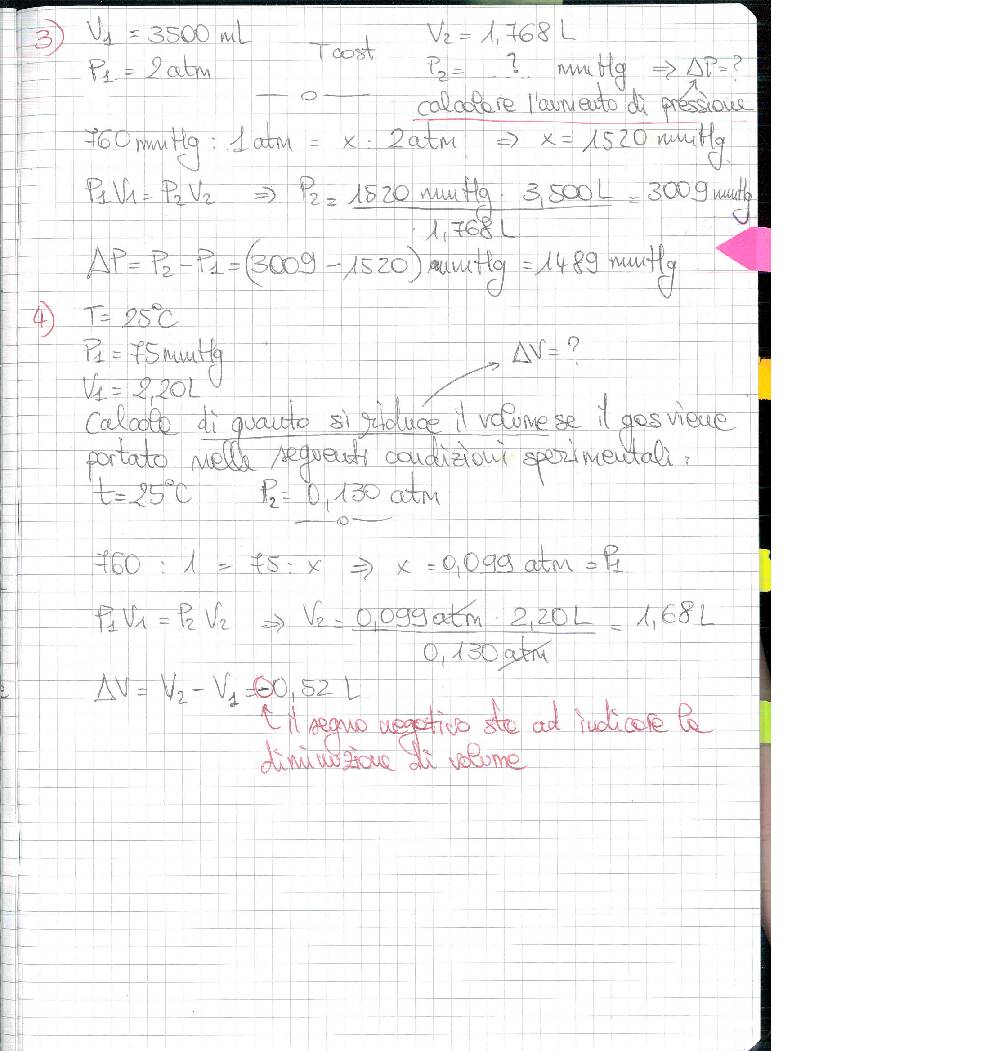 3) V1 = 3500 mL V2 = 1,768 L
T cost
P1 = 2 atm P2 = ? mmHg ⇒ ΔP = ?
calcolare l'aumento di pressione
760 mmHg : 1 atm = x : 2 atm ⇒ x = 1520 mmHg
P1V1 = P2V2 ⇒ P2 = 1520 mmHg · 3,500 L = 3009 mmHg
1,768 L
ΔP = P2 - P1 = (3009 - 1520) mmHg = 1489 mmHg
4) T = 25°C
P1 = 75 mmHg
ΔV = ?
V1 = 2,20 L
Calcola di quanto si riduce il volume se il gas viene
portato nelle seguenti condizioni sperimentali:
t = 25°C P2 = 0,130 atm
760 : 1 = 75 : x ⇒ x = 0,099 atm = P1
P1V1 = P2V2 ⇒ V2 = 0,099 atm · 2,20 L = 1,68 L
0,130 atm
ΔV = V2 - V1 = -0,52 L
↑ il segno negativo sta ad indicare la
diminuzione di volume